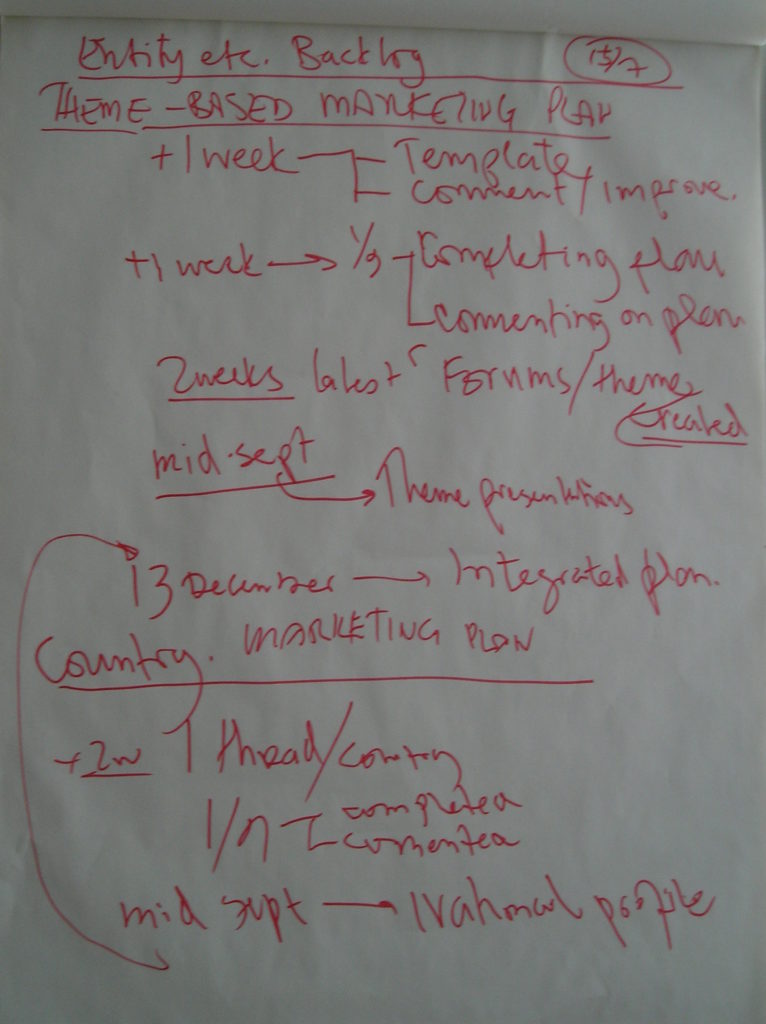 Entity etc. Backlog 15/7
THEME-BASED MARKETING PLAN
+1 week Template
comment/improve.
+1 week → 1/9 Completing plan
commenting on plan
2 weeks latest Forums/themes
created
mid-sept
Theme presentations
13 December → Integrated plan.
Country. MARKETING PLAN
+2w 1 thread/country
1/9 completed
commented
mid sept → National profile